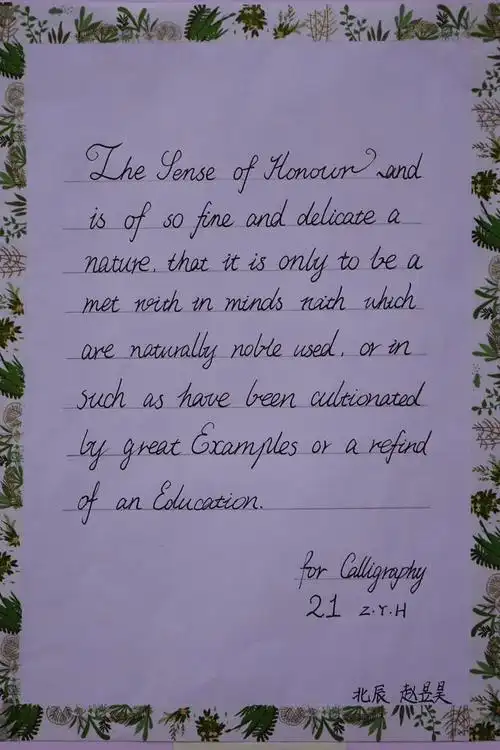 The Sense of Honour and
is of so fine and delicate a
nature, that it is only to be a
met with in minds with which
are naturally noble used, or in
such as have been cultionated
by great Examples or a refind
of an Education.
for Calligraphy
21 Z.Y.H
北辰 赵昱昊